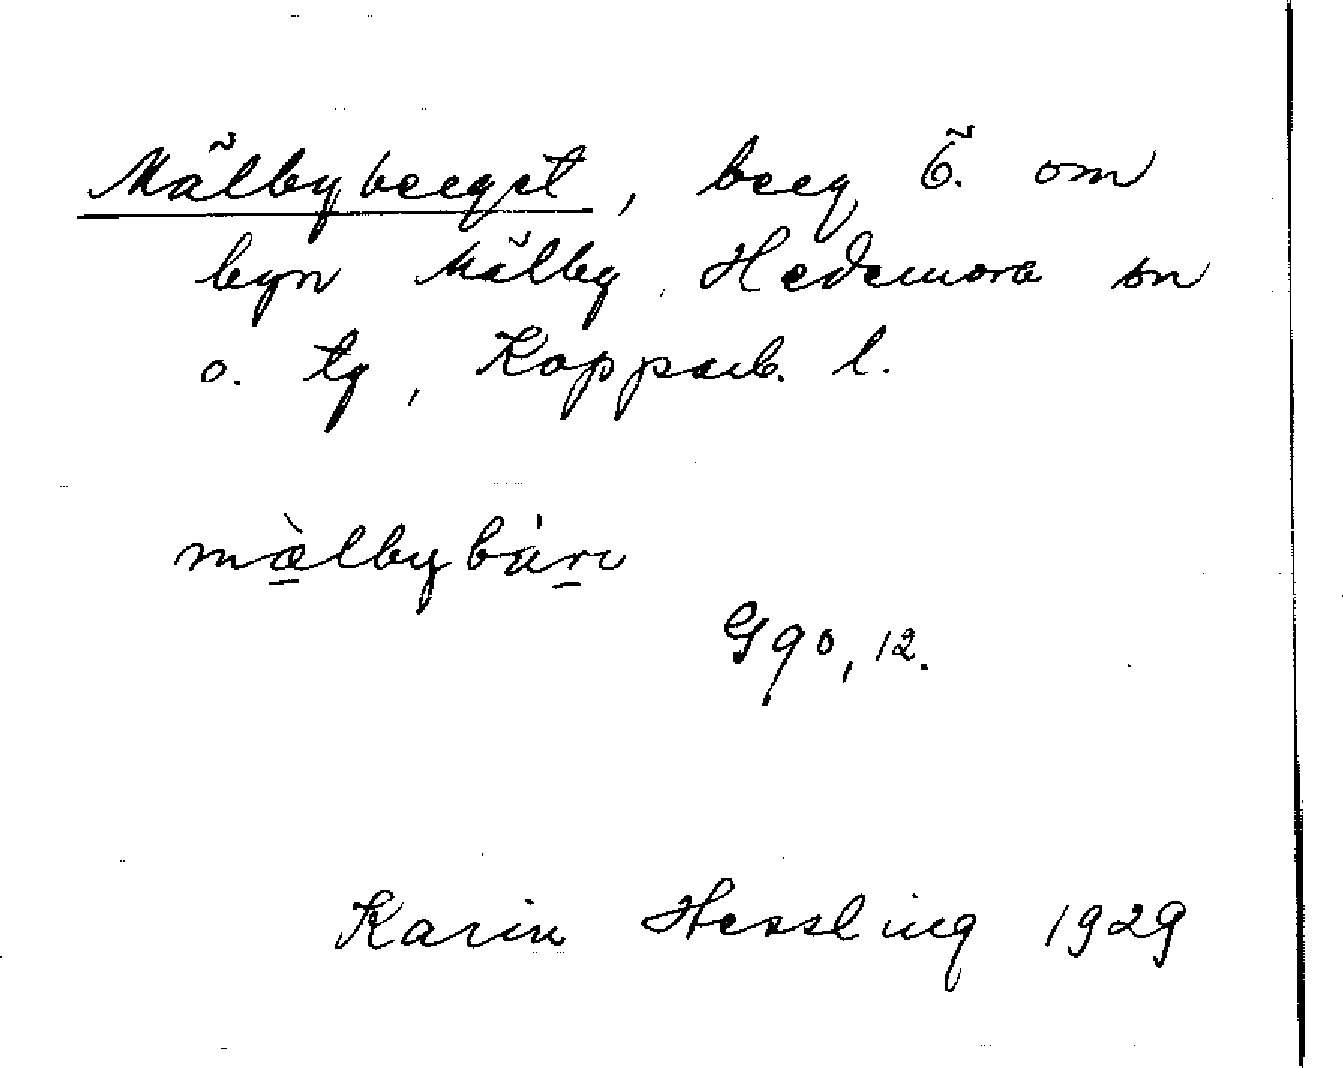 Mälbyberget, berg Ö. om
byn Mälby, Hedemora sn
o. tg, Kopparb. l.
mæ̀lbybári
G90, 12.
Karin Hessling 1929